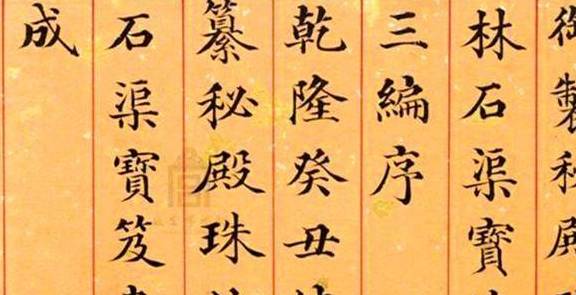 御製秘殿
林石渠寶
三編序
乾隆癸丑
纂秘殿珠
石渠寶笈
成